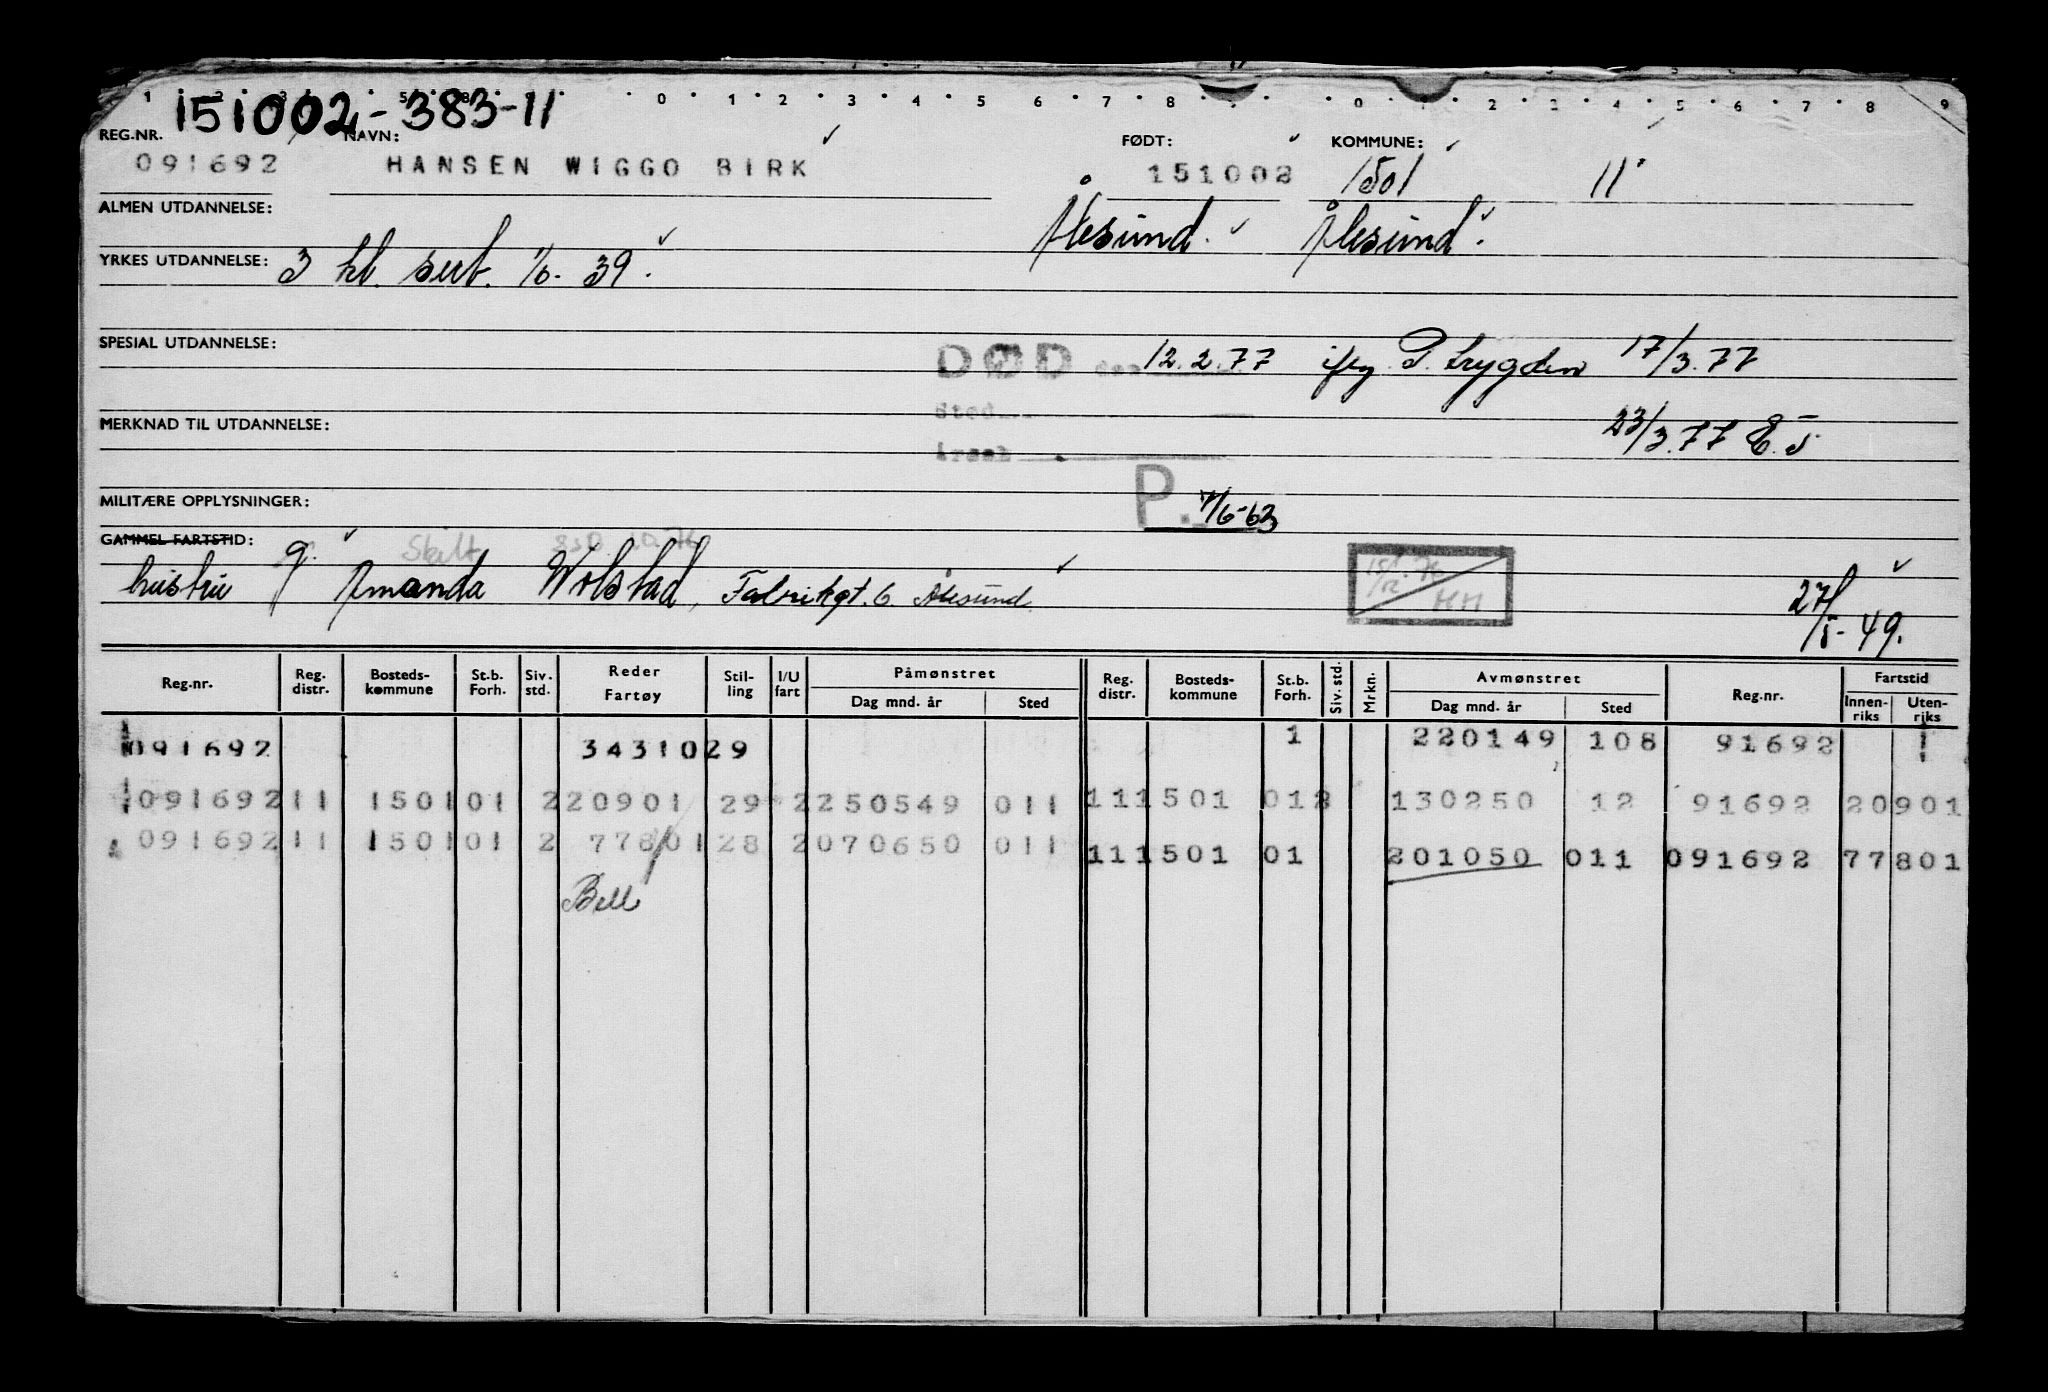 151002-383-11
REG.NR. NAVN: FØDT: KOMMUNE:
091692 HANSEN WIGGO BIRK 151002 1501 11
ALMEN UTDANNELSE: Ålesund. Ålesund.
YRKES UTDANNELSE: 3 kl. sert. 1/6-39.
SPESIAL UTDANNELSE: DØD den 12.2.77 iflg. P. trygden 17/3.77
Sted
MERKNAD TIL UTDANNELSE: 23/3.77
Årsak
MILITÆRE OPPLYSNINGER: P. 7/6-63
GAMMEL FARTSTID: g. Skilt
hustru Amanda Wolstad, Fabrikgt. 6. Ålesund. HM 27/5-49.
Reg.nr. Reg. distr. Bosteds-kommune St.b. Forh. Siv. std. Reder Fartøy Stil-ling I/U fart Påmønstret Dag mnd. år Sted Reg. distr. Bosteds-kommune St.b. Forh. Siv. std. Mrkn. Avmønstret Dag mnd. år Sted Reg.nr. Fartstid Innen-riks Uten-riks
091692 3431029 1 220149 108 91692
091692 11 1501 01 2 20901 29 2 250549 011 11 1501 01 130250 12 91692 20901
091692 11 1501 01 2 77801 28 2 070650 011 11 1501 01 201050 011 091692 77801
Bell